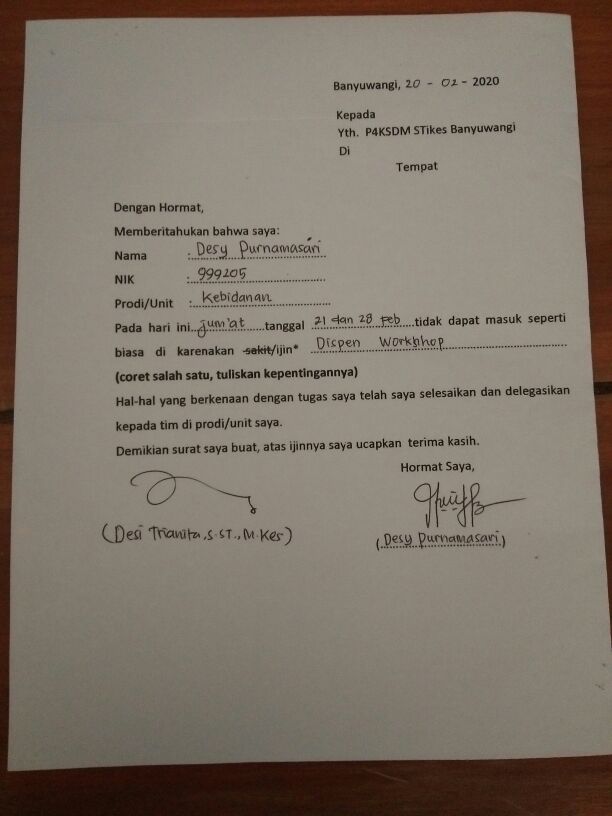 Banyuwangi, 20 - 02 - 2020
Kepada
Yth. P4KSDM STikes Banyuwangi
Di
Tempat
Dengan Hormat,
Memberitahukan bahwa saya:
Nama : Desy Purnamasari
NIK : 999205
Prodi/Unit : Kebidanan
Pada hari ini jum'at tanggal 21 dan 28 Feb tidak dapat masuk seperti
biasa di karenakan sakit/ijin* Dispen Workshop
(coret salah satu, tuliskan kepentingannya)
Hal-hal yang berkenaan dengan tugas saya telah saya selesaikan dan delegasikan
kepada tim di prodi/unit saya.
Demikian surat saya buat, atas ijinnya saya ucapkan terima kasih.
Hormat Saya,
(Desi Trianita, S.ST., M.Kes)
(Desy Purnamasari)